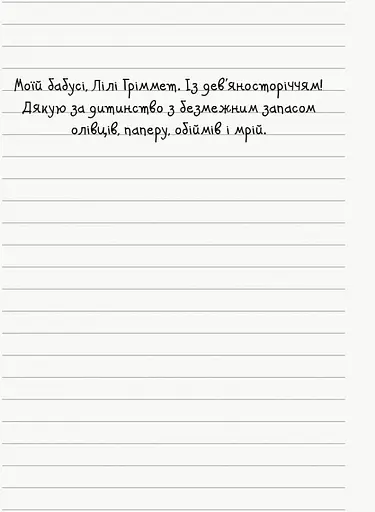 Моїй бабусі, Лілі Гріммет. Із дев'яносторіччям!
Дякую за дитинство з безмежним запасом
олівців, паперу, обіймів і мрій.